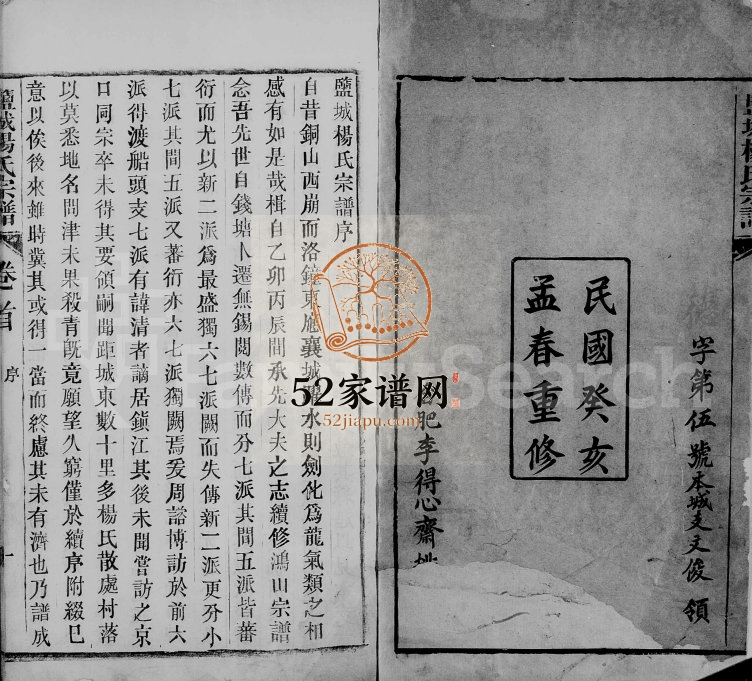 字第伍號本城支文俊領
民國癸亥
孟春重修
肥李得心齋
鹽城楊氏宗譜序
自昔銅山西崩而洛鐘東應襄城
水則劍化爲龍氣類之相
感有如是哉楫自乙卯丙辰間承先大夫之志續修鴻山宗譜
念吾先世自錢塘卜遷無錫閱數傳而分七派其間五派皆蕃
衍而尤以新二派爲最盛獨六七派闕而失傳新二派更分小
七派其間五派又蕃衍亦六七派獨闕焉爰周諮博訪於前六
派得渡船頭支七派有諱清者謫居鎮江其後未聞嘗訪之京
口同宗卒未得其要領嗣聞距城東數十里多楊氏散處村落
以莫悉地名問津未果殺青旣竟願望久窮僅於續序附綴已
意以俟後來雖時冀其或得一當而終慮其未有濟也乃譜成
鹽城楊氏宗譜
卷首
序
52家谱网
52jiapu.com